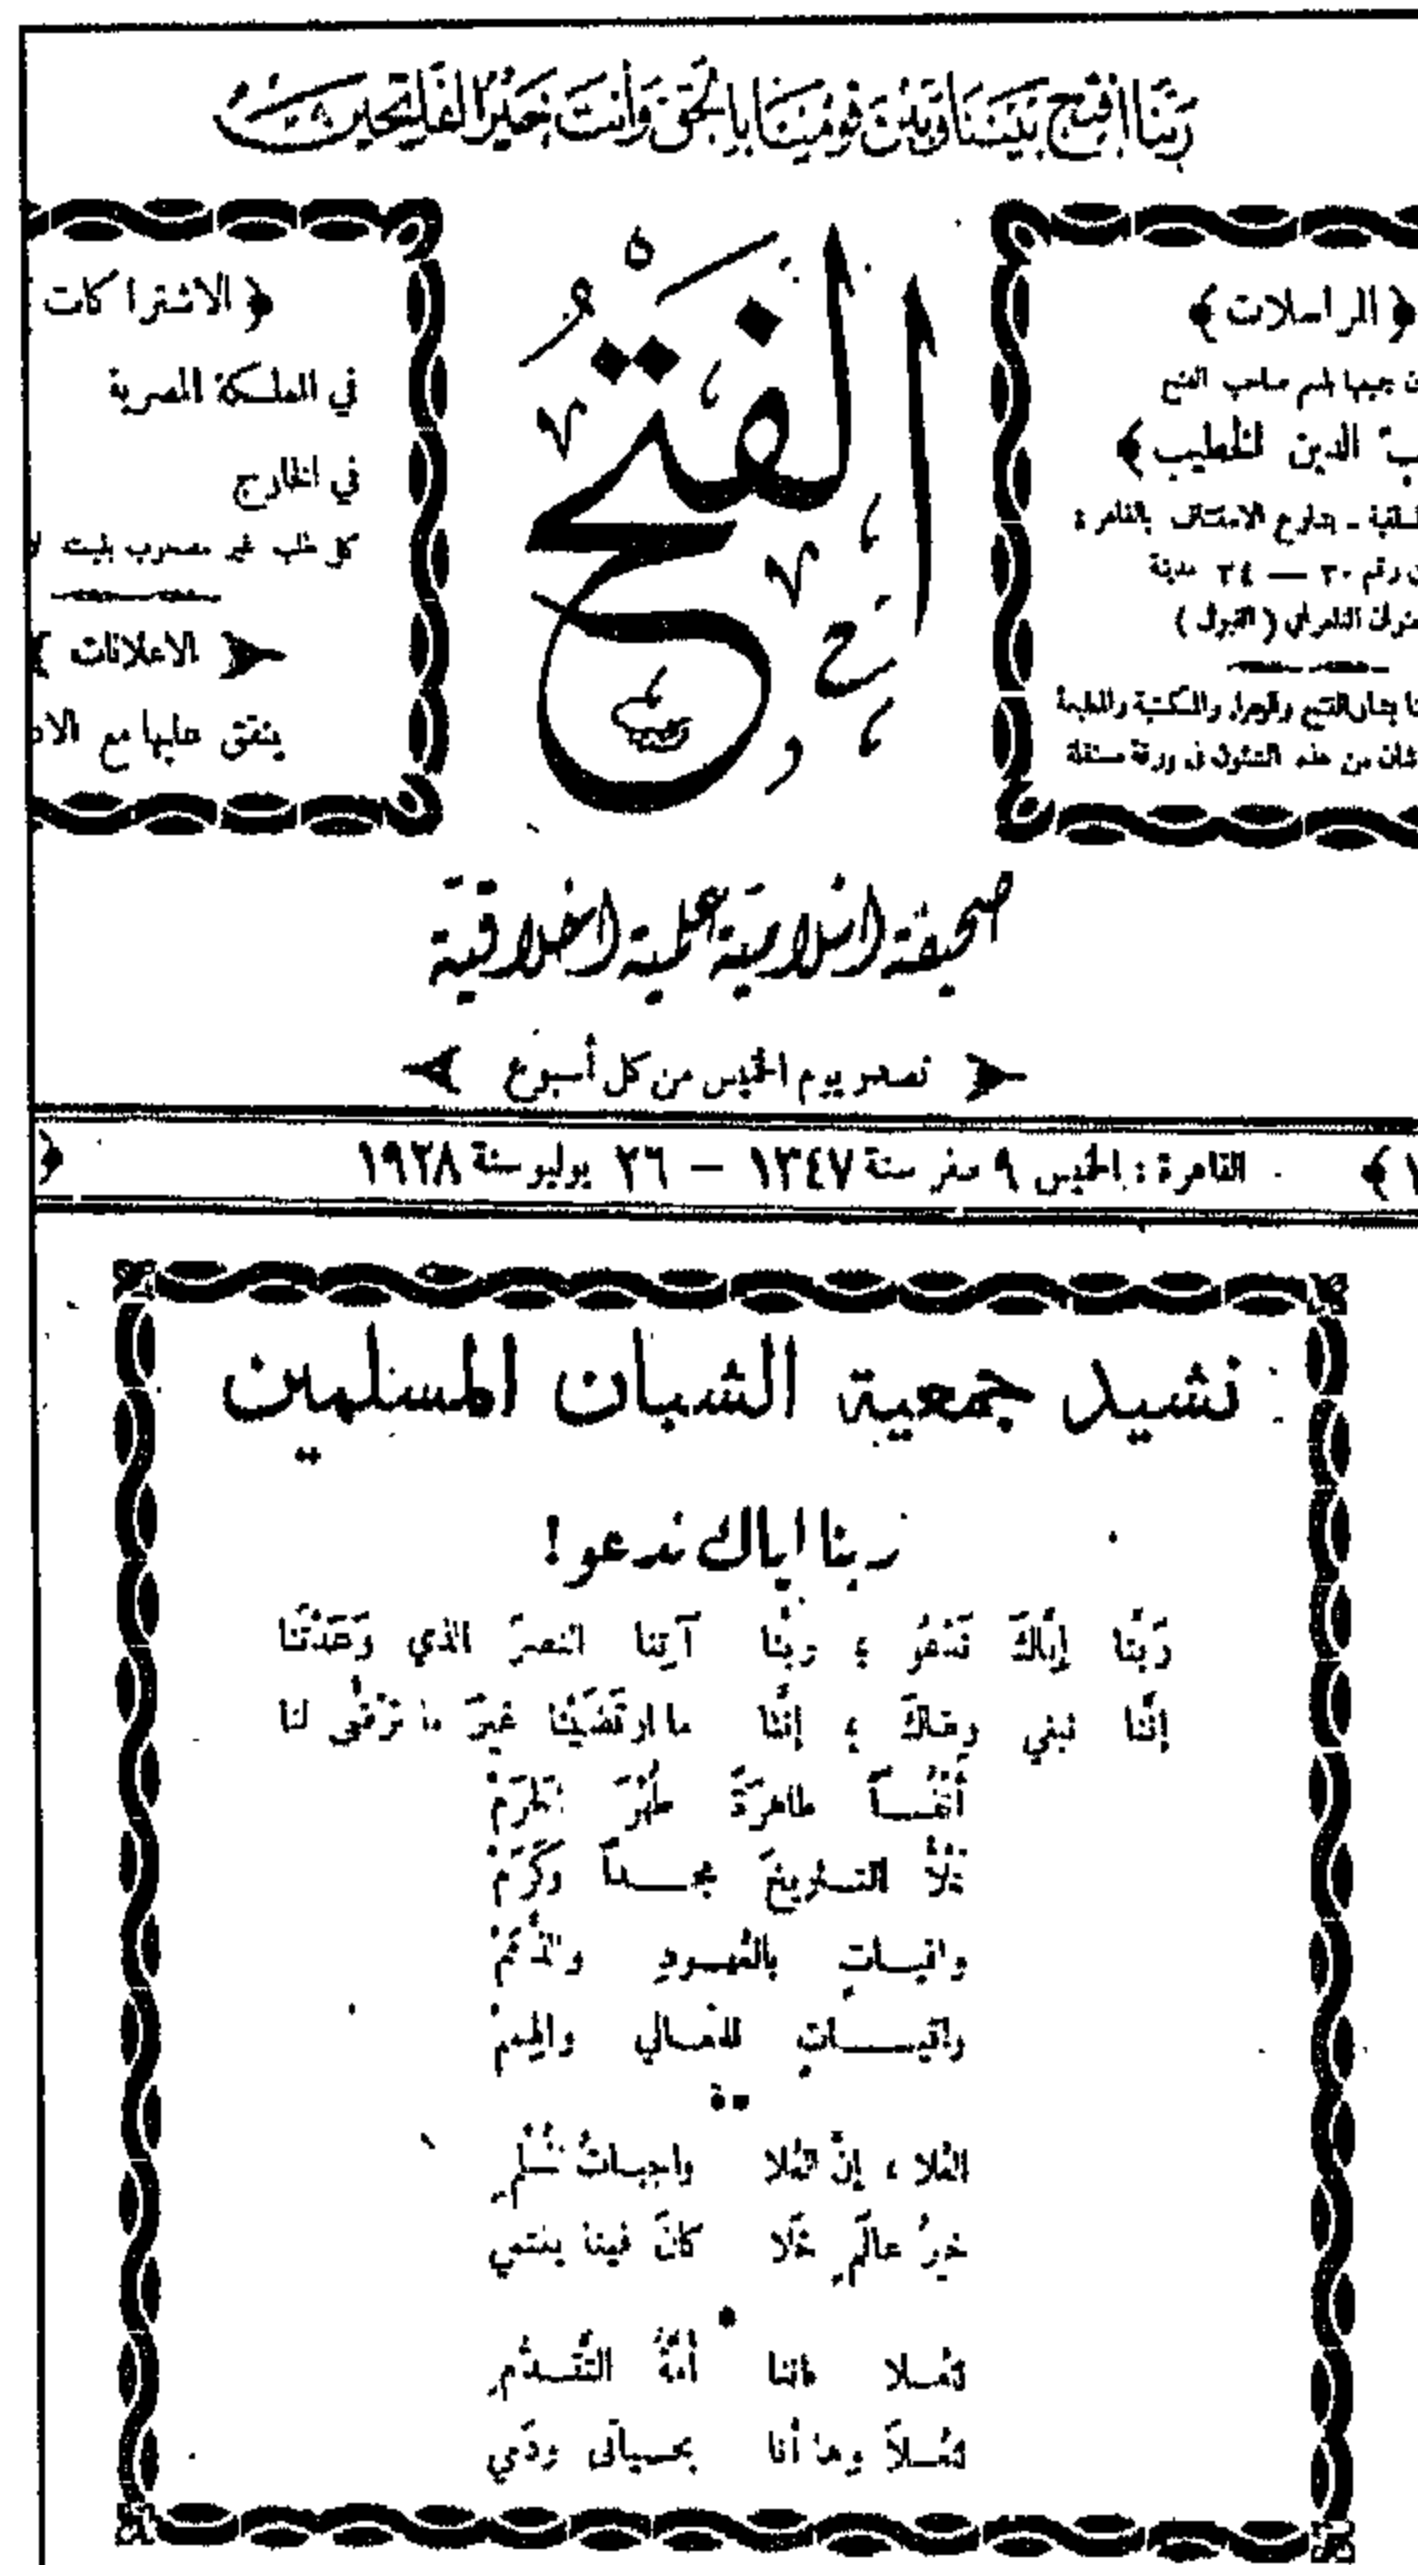 ربنا افتح بيننا وبين قومنا بالحق وأنت خير الفاتحين
﴿ المراسلات ﴾
جميعها باسم صاحب الفتح
ب الدين الخطيب ﴾
السلفية ـ بشارع الاستئناف بالقاهرة
رقم ٣٠ — ٢٤ مدينة
التلغرافي ( )
بشأن الفتح والزهراء والمكتبة والمطبعة
شأن من هذه الشئون في ورقة مستقلة
الفتح
﴿ الاشتراكات
في المملكة المصرية
في الخارج
كل طلب غير مصحوب بقيمته
﴿ الاعلانات ﴾
يتفق عليها مع الاد
صحيفة اسلامية علمية اخلاقية
تصدر يوم الخميس من كل أسبوع
القاهرة : الخميس ٩ صفر سنة ١٣٤٧ — ٢٦ يوليو سنة ١٩٢٨
نشيد جمعية الشبان المسلمين
ربنا اياك ندعو !
رَبَّنا إيَّاكَ نَدعُو ؛ ربَّنا آتِنا النصرَ الذي وَعَدْتَنا
إنَّنا نبغي رضاكَ ؛ إنَّنا ما ارتَضَيْنا غيرَ ما تَرْضَى لنا
أنفُســاً طاهرَةً طُهْرَ الحَرَمْ
تملأُ التــاريخَ مجــداً وكَرَمْ
واقيــاتٍ بالعُهــودِ والذِّمَمْ
راقيــــاتٍ للمعــالي والهِممْ
العُلا ، إنَّ العُلا واجبــاتُ المُسْلِمِ
خيرُ عالَمٍ خَلا كانَ فينا ينتمي
للعُــلا فاننا أمَّةُ التَّقَــدُّمِ
للعُــلاَ وها أنا بحــياتي ودَمي